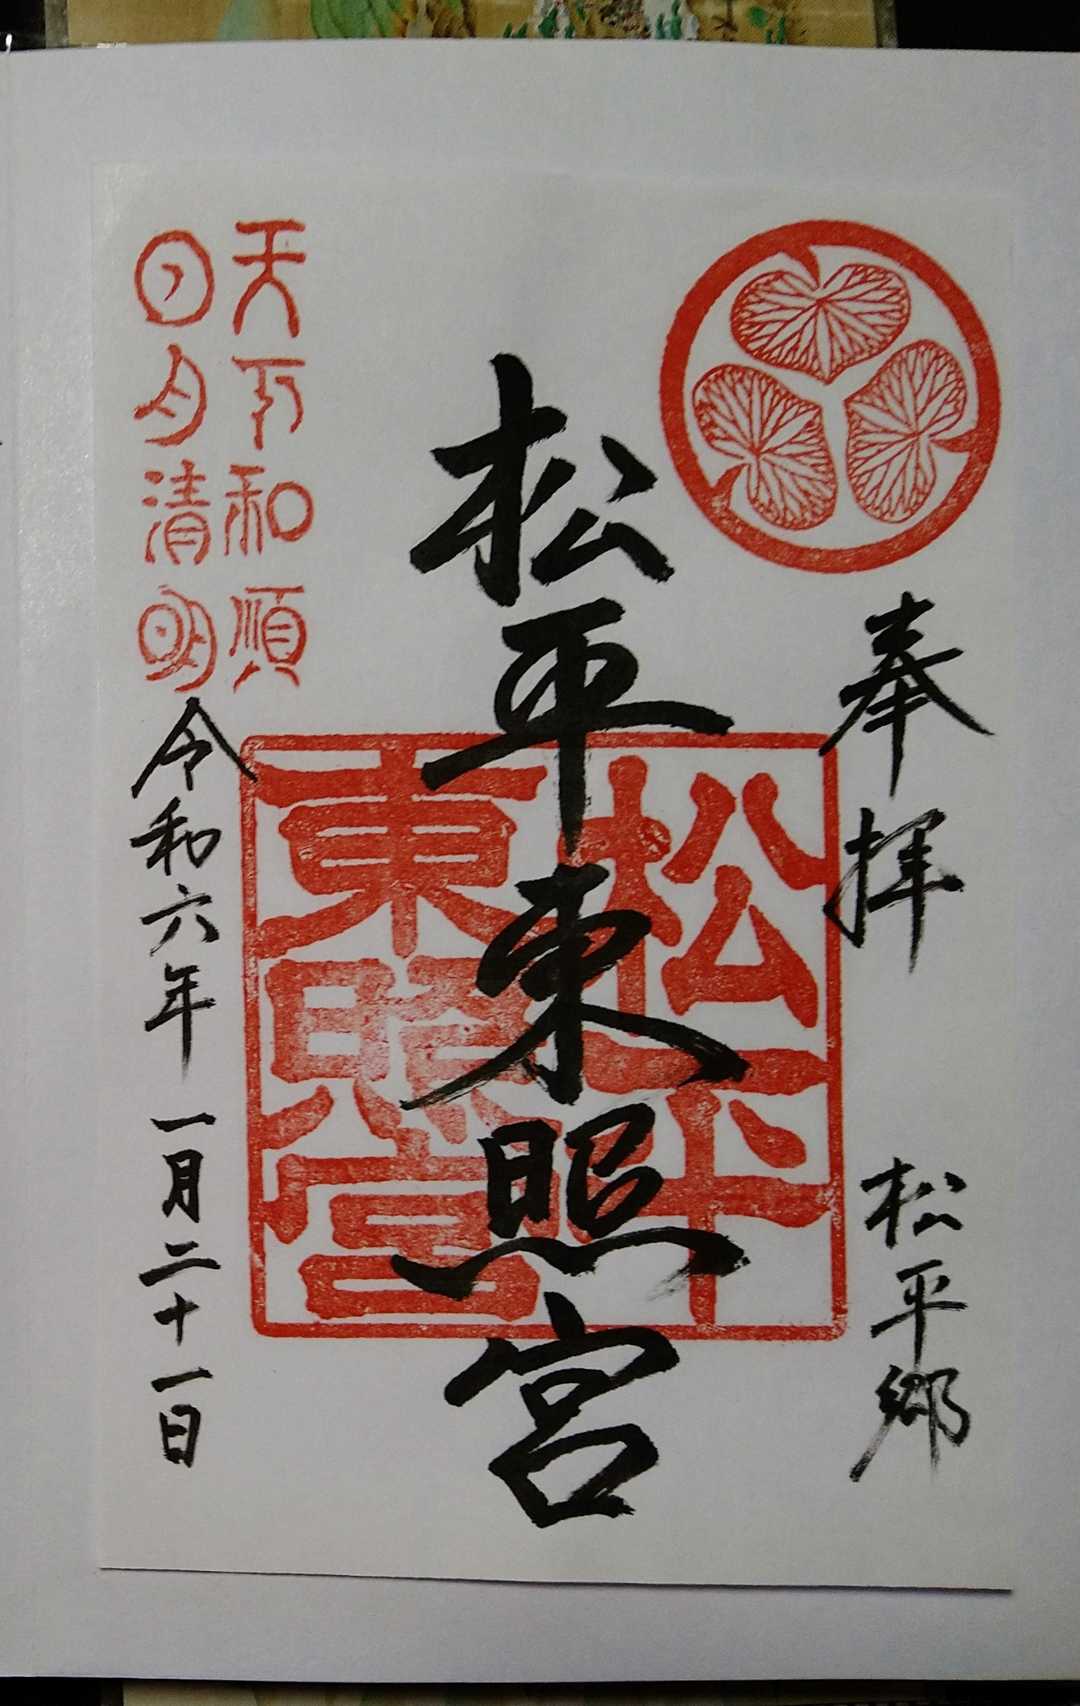 奉拝
松平郷
松平東照宮
松平
東照宮
天下和順
日月清明
令和六年一月二十一日